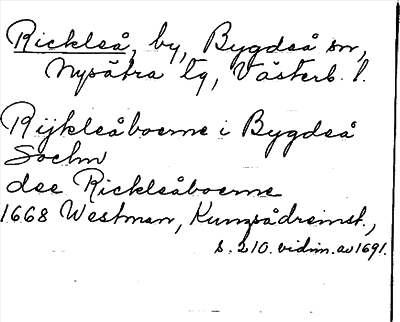 Rickleå, by, Bygdeå sn,
Nysätra tg, Västerb. l.
Rijkleåboerne i Bygdeå
Sochn
dee Rickleåboerne
1668 Westman, Kungsådreinst.,
s. 210. vidim. av 1691.